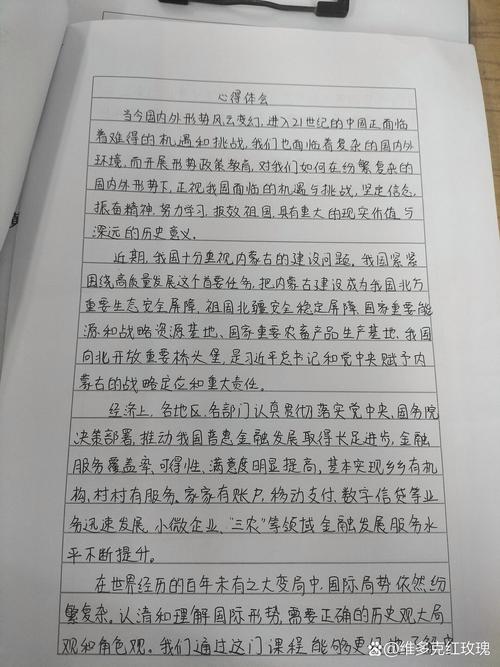 心得体会
当今国内外形势风云变幻,进入21世纪的中国正面临
着难得的机遇和挑战,我们也面临着复杂的国内外
环境,而开展形势政策教育,对我们如何在纷繁复杂的
国内外形势下,正视我国面临的机遇与挑战,坚定信念,
振奋精神,努力学习,报效祖国,具有重大的现实价值与
深远的历史意义。
近期,我国十分重视内蒙古的建设问题。我国紧紧
围绕高质量发展这个首要任务,把内蒙古建设成为我国北方
重要生态安全屏障、祖国北疆安全稳定屏障、国家重要能
源和战略资源基地、国家重要农畜产品生产基地、我国
向北开放重要桥头堡,是习近平总书记和党中央赋予内
蒙古的战略定位和重大责任。
经济上,各地区、各部门认真贯彻落实党中央、国务院
决策部署,推动我国普惠金融发展取得长足进步,金融
服务覆盖率、可得性、满意度明显提高,基本实现乡乡有机
构、村村有服务、家家有账户,移动支付、数字信贷等业
务迅速发展,小微企业、“三农”等领域金融发展服务水
平不断提升。
在世界经历的百年未有之大变局中,国际局势依然纷
繁复杂。认清和理解国际形势,需要正确的历史观大局
观和角色观。我们通过这门课程能够更
@维多克红玫瑰